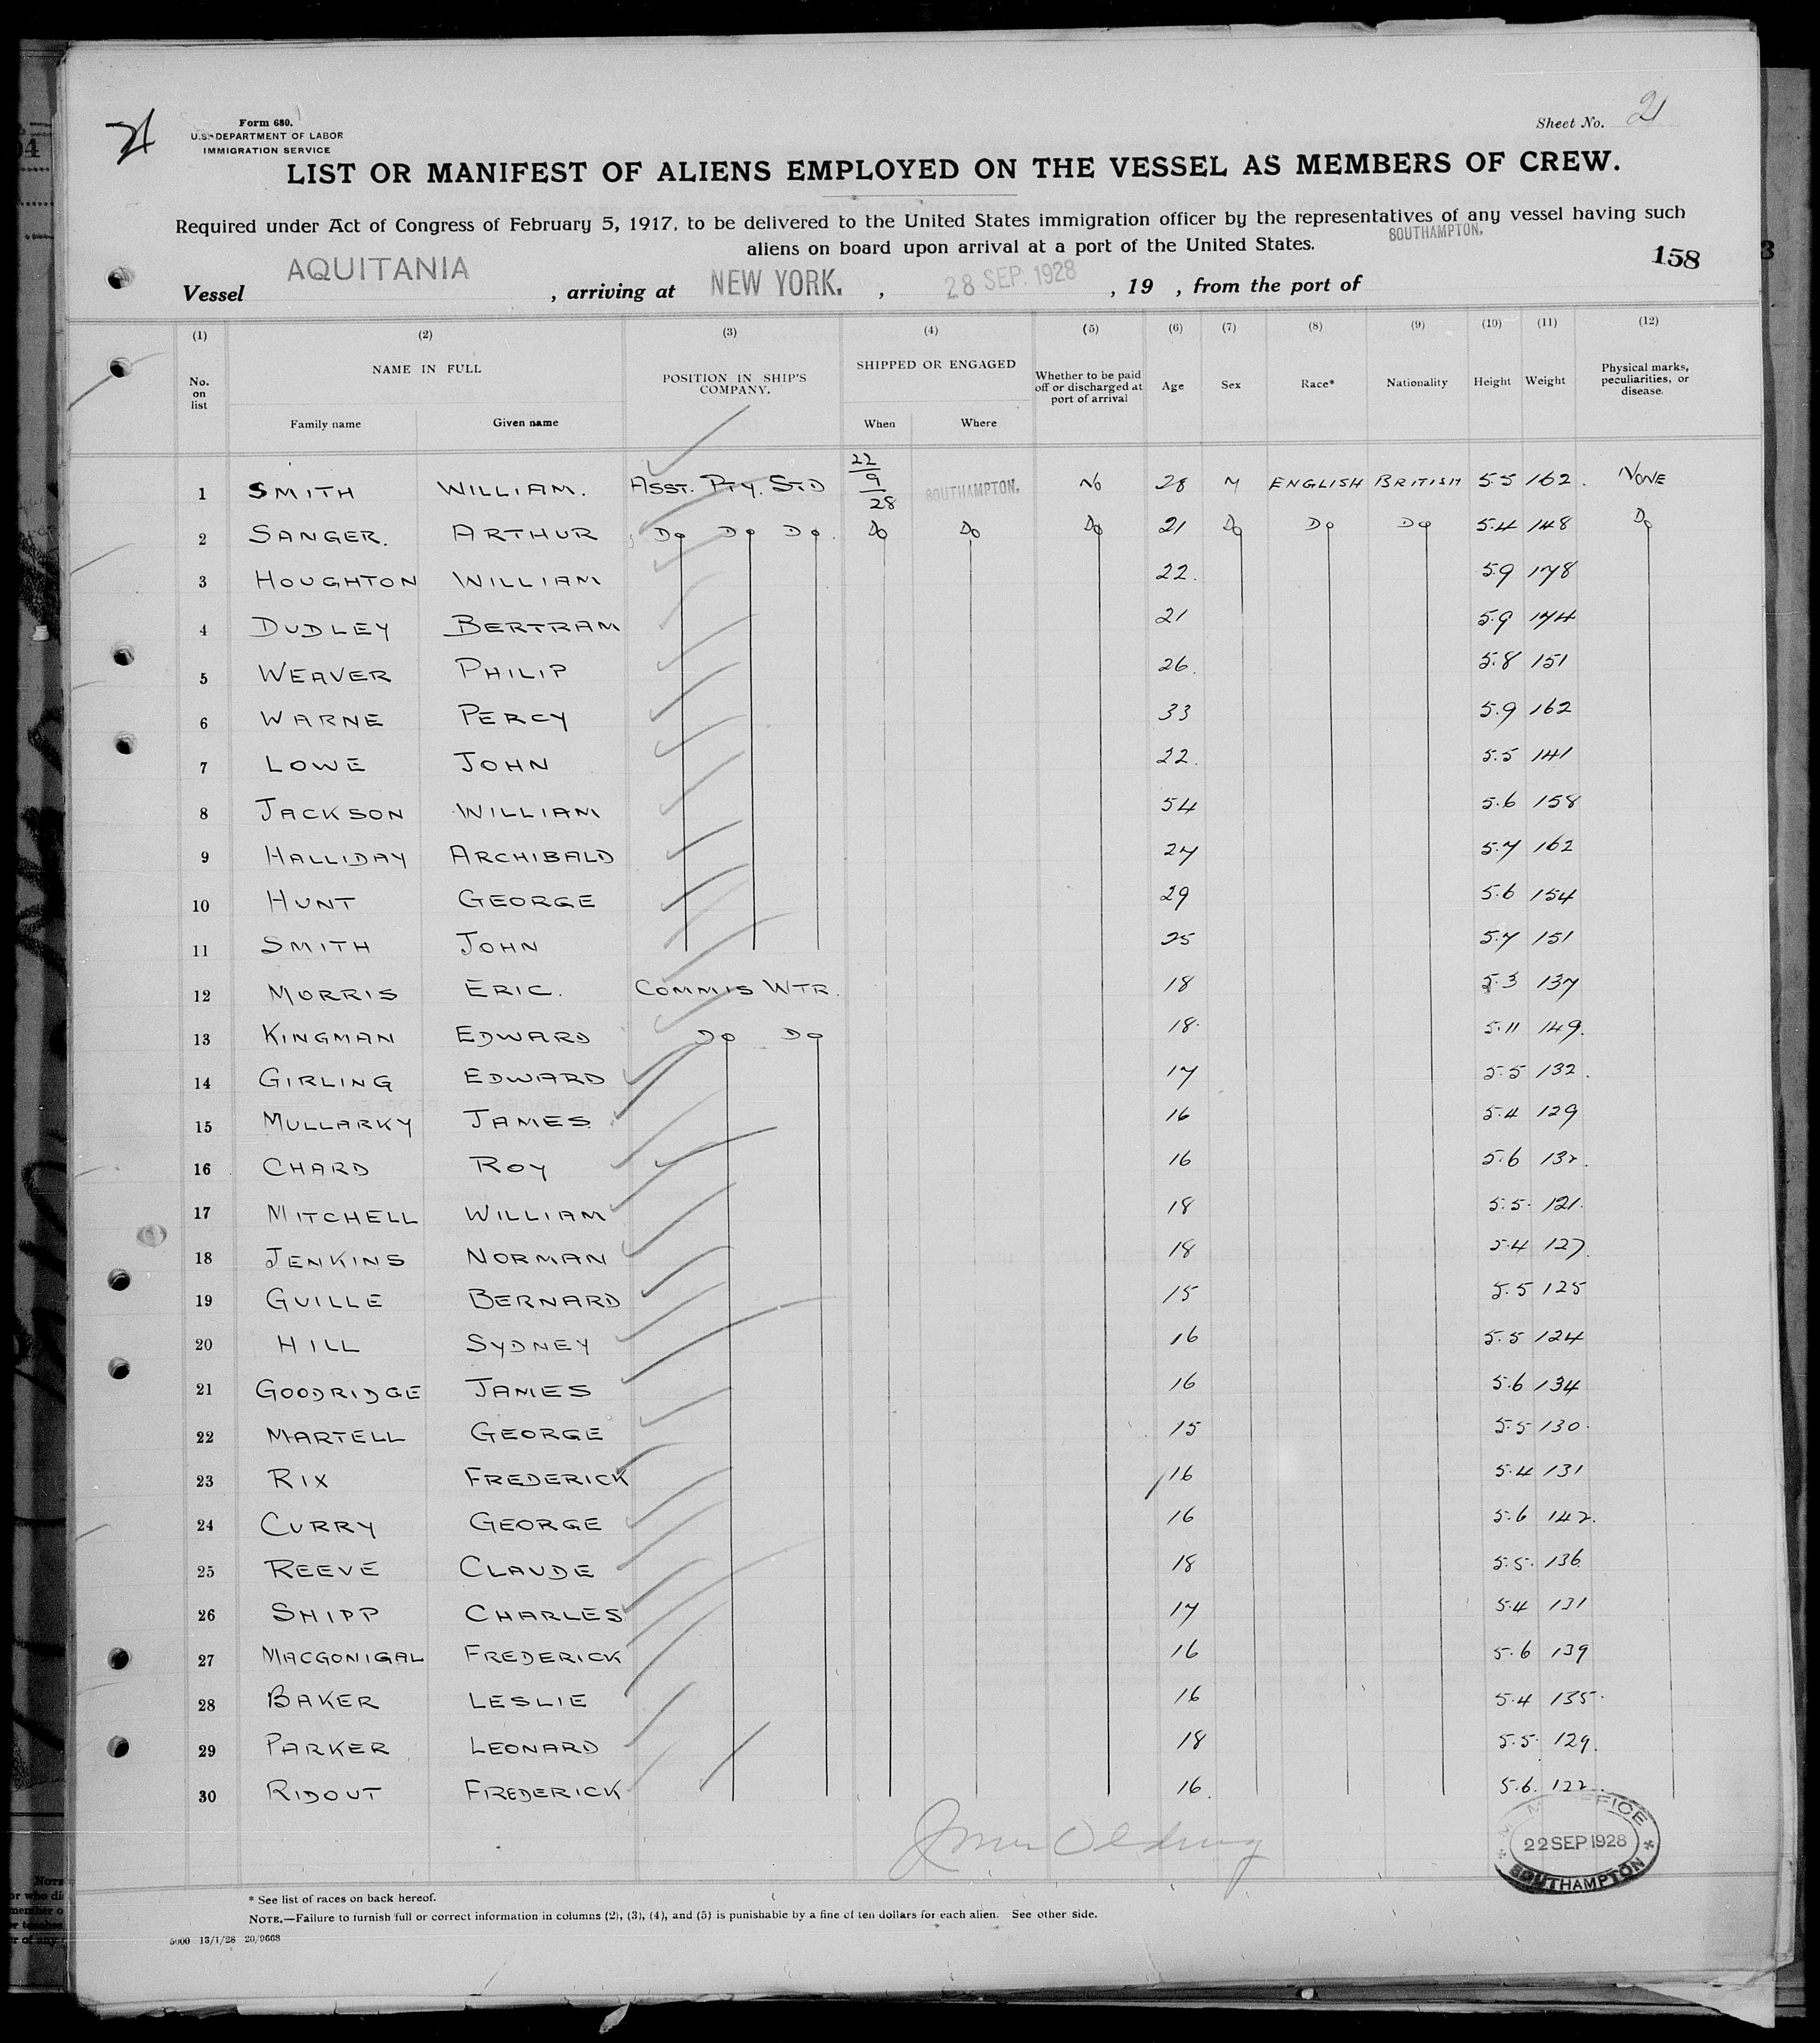 21
Form 680.
U.S. DEPARTMENT OF LABOR
IMMIGRATION SERVICE
Sheet No. 21
LIST OR MANIFEST OF ALIENS EMPLOYED ON THE VESSEL AS MEMBERS OF CREW.
Required under Act of Congress of February 5, 1917, to be delivered to the United States immigration officer by the representatives of any vessel having such
aliens on board upon arrival at a port of the United States.
SOUTHAMPTON.
158
Vessel AQUITANIA, arriving at NEW YORK., 28 SEP. 1928, 19 , from the port of
(1) (2) (3) (4) (5) (6) (7) (8) (9) (10) (11) (12)
No. on list NAME IN FULL POSITION IN SHIP'S COMPANY. SHIPPED OR ENGAGED Whether to be paid off or discharged at port of arrival Age Sex Race* Nationality Height Weight Physical marks, peculiarities, or disease.
Family name Given name When Where
1 SMITH WILLIAM. ASST. PTY. STD 22/9/28 SOUTHAMPTON. No 28 M ENGLISH BRITISH 5.5 162. NONE
2 SANGER. ARTHUR Do Do Do. Do Do Do 21 Do Do Do 5.4 148 Do
3 HOUGHTON WILLIAM 22. 5.9 178
4 DUDLEY BERTRAM 21 5.9 174
5 WEAVER PHILIP 26. 5.8 151
6 WARNE PERCY 33 5.9 162
7 LOWE JOHN 22. 5.5 141
8 JACKSON WILLIAM 54 5.6 158
9 HALLIDAY ARCHIBALD 27 5.7 162
10 HUNT GEORGE 29 5.6 154
11 SMITH JOHN 25 5.7 151
12 MORRIS ERIC. COMMIS WTR. 18 5.3 137
13 KINGMAN EDWARD Do Do 18. 5.11 149.
14 GIRLING EDWARD 17 5.5 132.
15 MULLARKY JAMES. 16 5.4 129
16 CHARD ROY 16 5.6 132.
17 MITCHELL WILLIAM 18 5.5. 121.
18 JENKINS NORMAN 18 5.4 127.
19 GUILLE BERNARD 15 5.5 125
20 HILL SYDNEY 16 5.5 124
21 GOODRIDGE JAMES 16 5.6 134
22 MARTELL GEORGE 15 5.5 130.
23 RIX FREDERICK 16 5.4 131
24 CURRY GEORGE 16 5.6 142.
25 REEVE CLAUDE 18 5.5. 136
26 SHIPP CHARLES 17 5.4 131
27 MACGONIGAL FREDERICK 16 5.6 139
28 BAKER LESLIE 16 5.4 135.
29 PARKER LEONARD 18 5.5. 129.
30 RIDOUT FREDERICK 16. 5.6. 122.
OFFICE
22 SEP 1928
SOUTHAMPTON
* See list of races on back hereof.
NOTE.—Failure to furnish full or correct information in columns (2), (3), (4), and (5) is punishable by a fine of ten dollars for each alien. See other side.
5000 13/1/28 20/9668